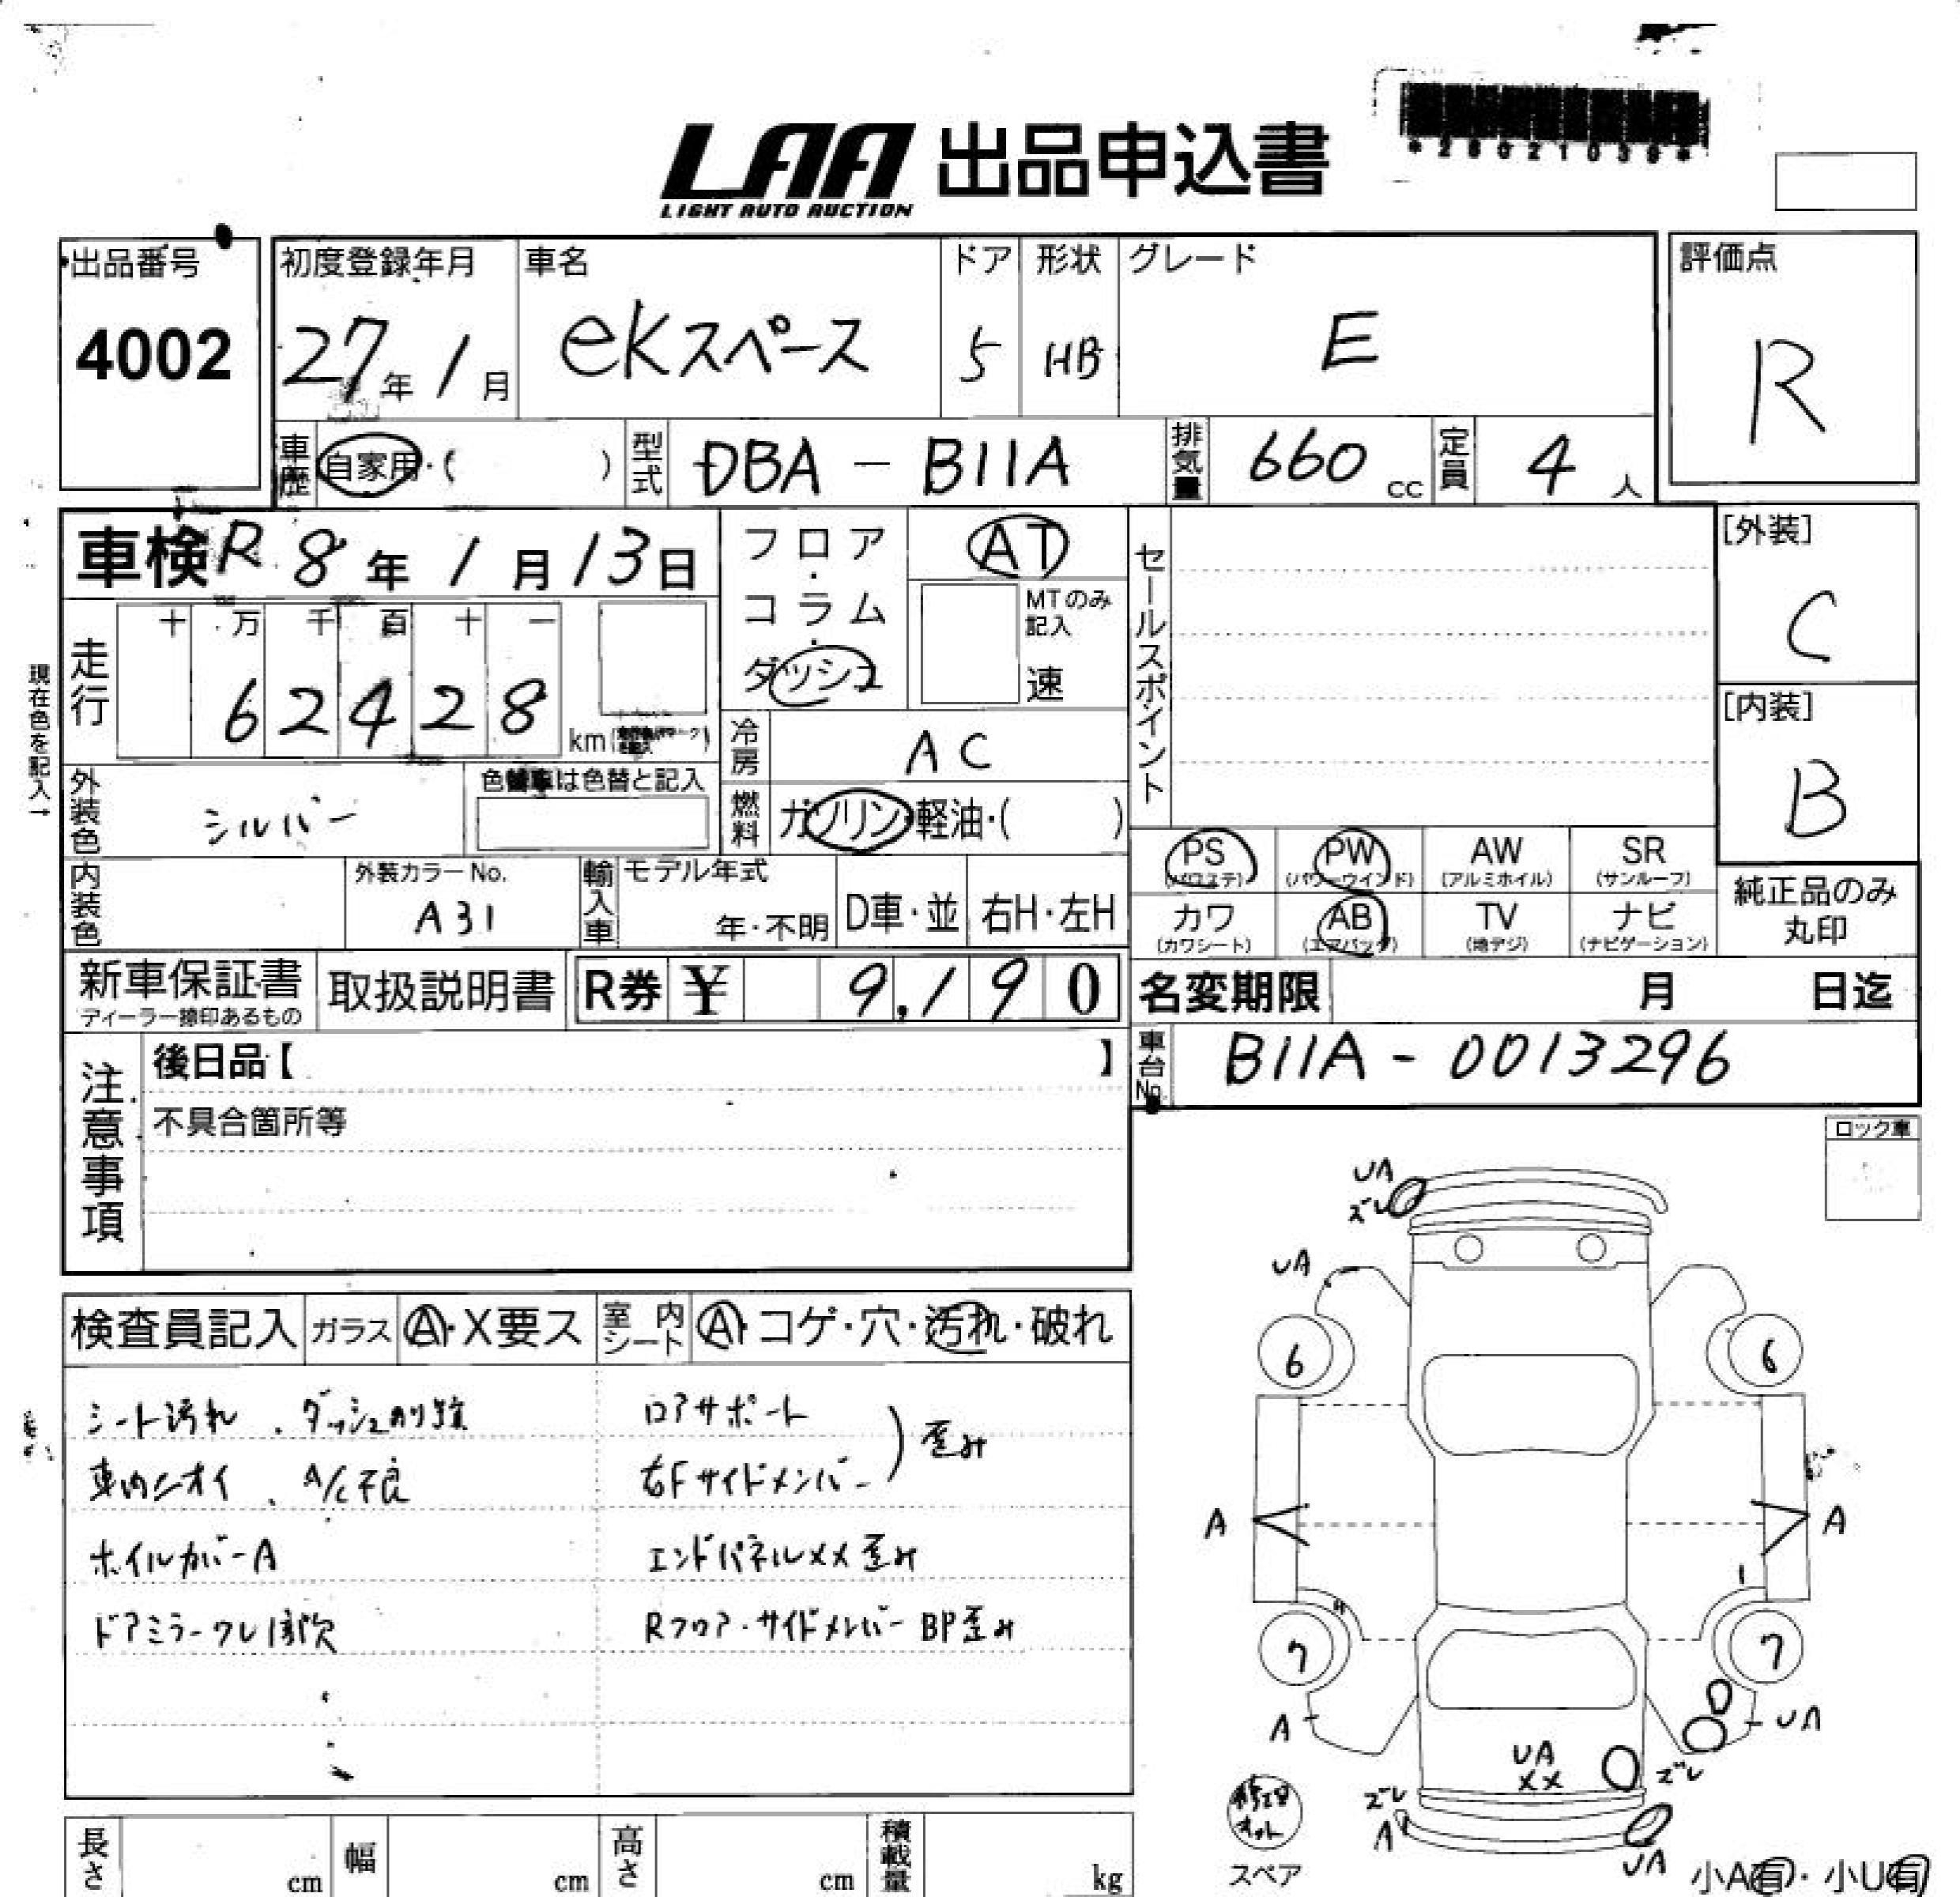 LAA 出品申込書
LIGHT AUTO AUCTION
*28021039*
出品番号
4002
初度登録年月
27年1月
車名
eKスペース
ドア
5
形状
HB
グレード
E
評価点
R
車歴 自家用・( )
型式 DBA - B11A
排気量 660 cc
定員 4 人
車検 R 8年1月13日
フロア・コラム・ダッシュ
AT
MTのみ記入
速
セールスポイント
[外装]
C
現在色を記入→
走行
十 万 千 百 十 一
6 2 4 2 8
km
冷房 AC
[内装]
B
外装色 シルバー
は色替と記入
燃料 ガソリン・軽油・( )
PS (パワステ)
PW (パワーウインド)
AW (アルミホイル)
SR (サンルーフ)
内装色
外装カラーNo.
A31
輸入車
モデル年式
年・不明
D車・並
右H・左H
カワ (カワシート)
AB (エアバッグ)
TV (地デジ)
ナビ (ナビゲーション)
純正品のみ丸印
新車保証書
ディーラー捺印あるもの
取扱説明書
R券 ¥ 9,190
名変期限 月 日迄
車台No. B11A - 0013296
注意事項
後日品【 】
不具合箇所等
ロック車
検査員記入
ガラス A・X要ス
室内シート A・コゲ・穴・汚れ・破れ
シート汚れ、ダッシュのり跡
車内ニオイ、A/C不良
ホイルカバーA
ドアミラーウレ1部欠
ロアサポート
右Fサイドメンバー
歪み
エンドパネルXX歪み
Rフロア・サイドメンバーBP歪み
UA
ズレ
UA
6
6
A
A
7
7
A
UA
UA
XX
ズレ
ズレ
A
UA
スペア
小A有・小U有
長さ cm
幅 cm
高さ cm
積載量 kg